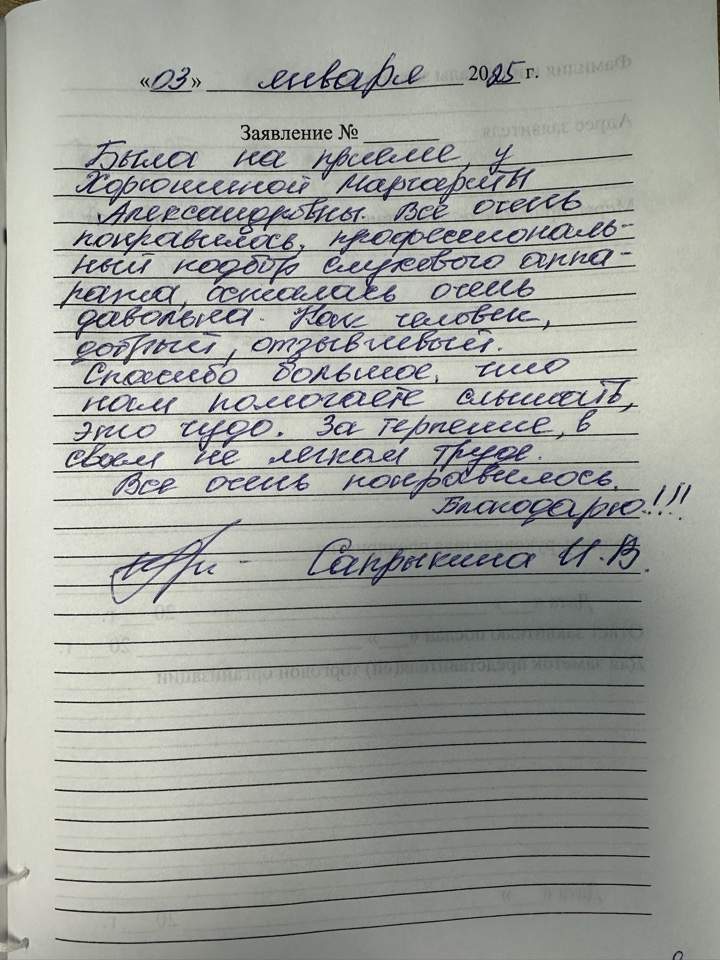 «03» января 2025 г.
Заявление №
Была на приеме у
Хорюшиной Маргариты
Александровны. Все очень
понравилось, профессиональ-
ный подбор слухового аппа-
рата, осталась очень
давольна. Как человек,
добрый, отзывчивый.
Спасибо большое, что
нам помогаете слышать,
это чудо. За терпение, в
своем не легком труде.
Все очень понравилось.
Благодарю!!!
Сапрыкина И.В.